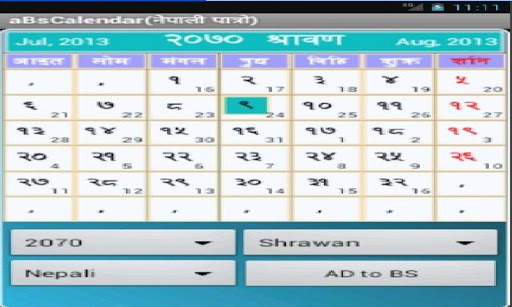 3G 11:11
aBsCalendar(नेपाली पात्रो)
Jul, 2013 २०७० श्रावण Aug, 2013
आइत सोम मंगल बुध बिहि शुक्र शनि
. . १ २ ३ ४ ५
16 17 18 19 20
६ ७ ८ ९ १० ११ १२
21 22 23 24 25 26 27
१३ १४ १५ १६ १७ १८ १९
28 29 30 31 1 2 3
२० २१ २२ २३ २४ २५ २६
4 5 6 7 8 9 10
२७ २८ २९ ३० ३१ ३२ .
11 12 13 14 15 16
. . . . . . .
2070 Shrawan
Nepali AD to BS